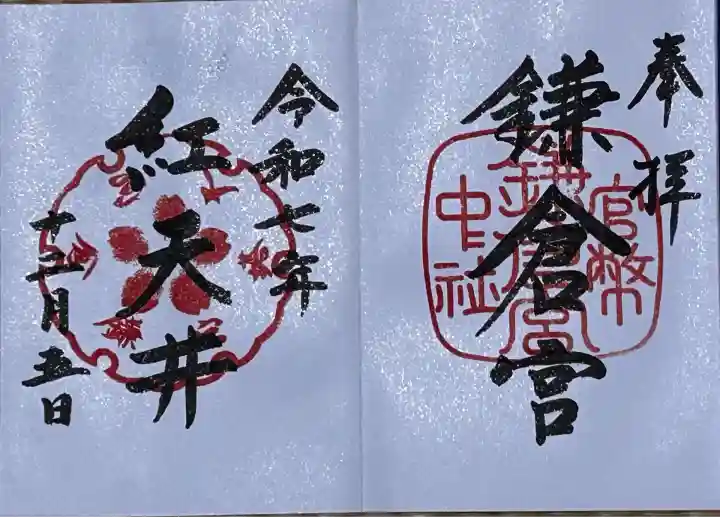 奉拝
鎌倉宮
官幣
鎌倉宮
中社
令和七年
紅天井
十二月五日